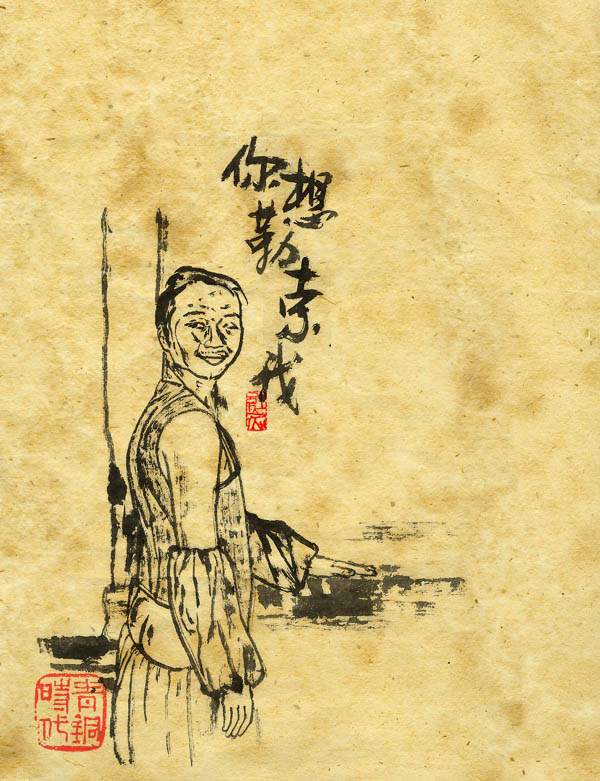 你想勒索我
青銅
時代